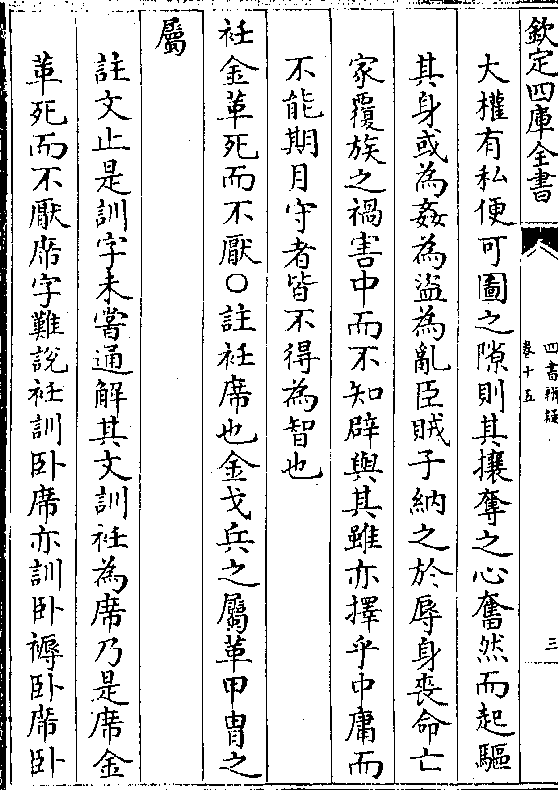 欽定四庫全書
四書辨疑
卷十五
三
大權有私便可圖之隙則其攘奪之心奮然而起驅
其身或為姦為盜為亂臣賊子納之於辱身喪命亡
家覆族之禍害中而不知辟與其雖亦擇乎中庸而
不能期月守者皆不得為智也
衽金革死而不厭○註衽席也金戈兵之屬革甲胄之
屬
註文止是訓字未嘗通解其文訓衽為席乃是席金
革死而不厭席字難說衽訓卧席亦訓卧褥卧席卧